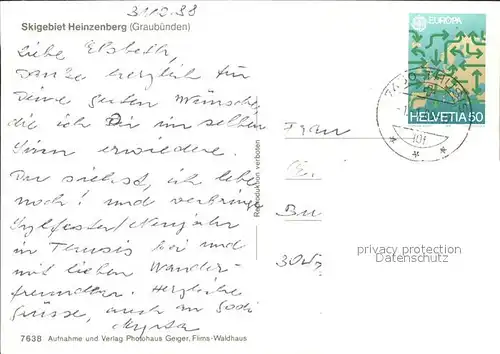 31/12.88
Skigebiet Heinzenberg (Graubünden)
Liebe Elsbeth,
danke herzlich für
Deine guten Wünsche,
die ich Dir im selben
Sinn erwiedere.
Du siehst, ich lebe
noch! und verbringe
Sylvester/Neujahr
in Thusis bei und
mit lieben Wander-
freunden. Herzliche
Grüsse, auch an
7638 Aufnahme und Verlag Photohaus Geiger, Flims-Waldhaus
Reproduktion verboten
EUROPA
HELVETIA 50
7430 THUSIS
Frau
privacy protection
Datenschutz